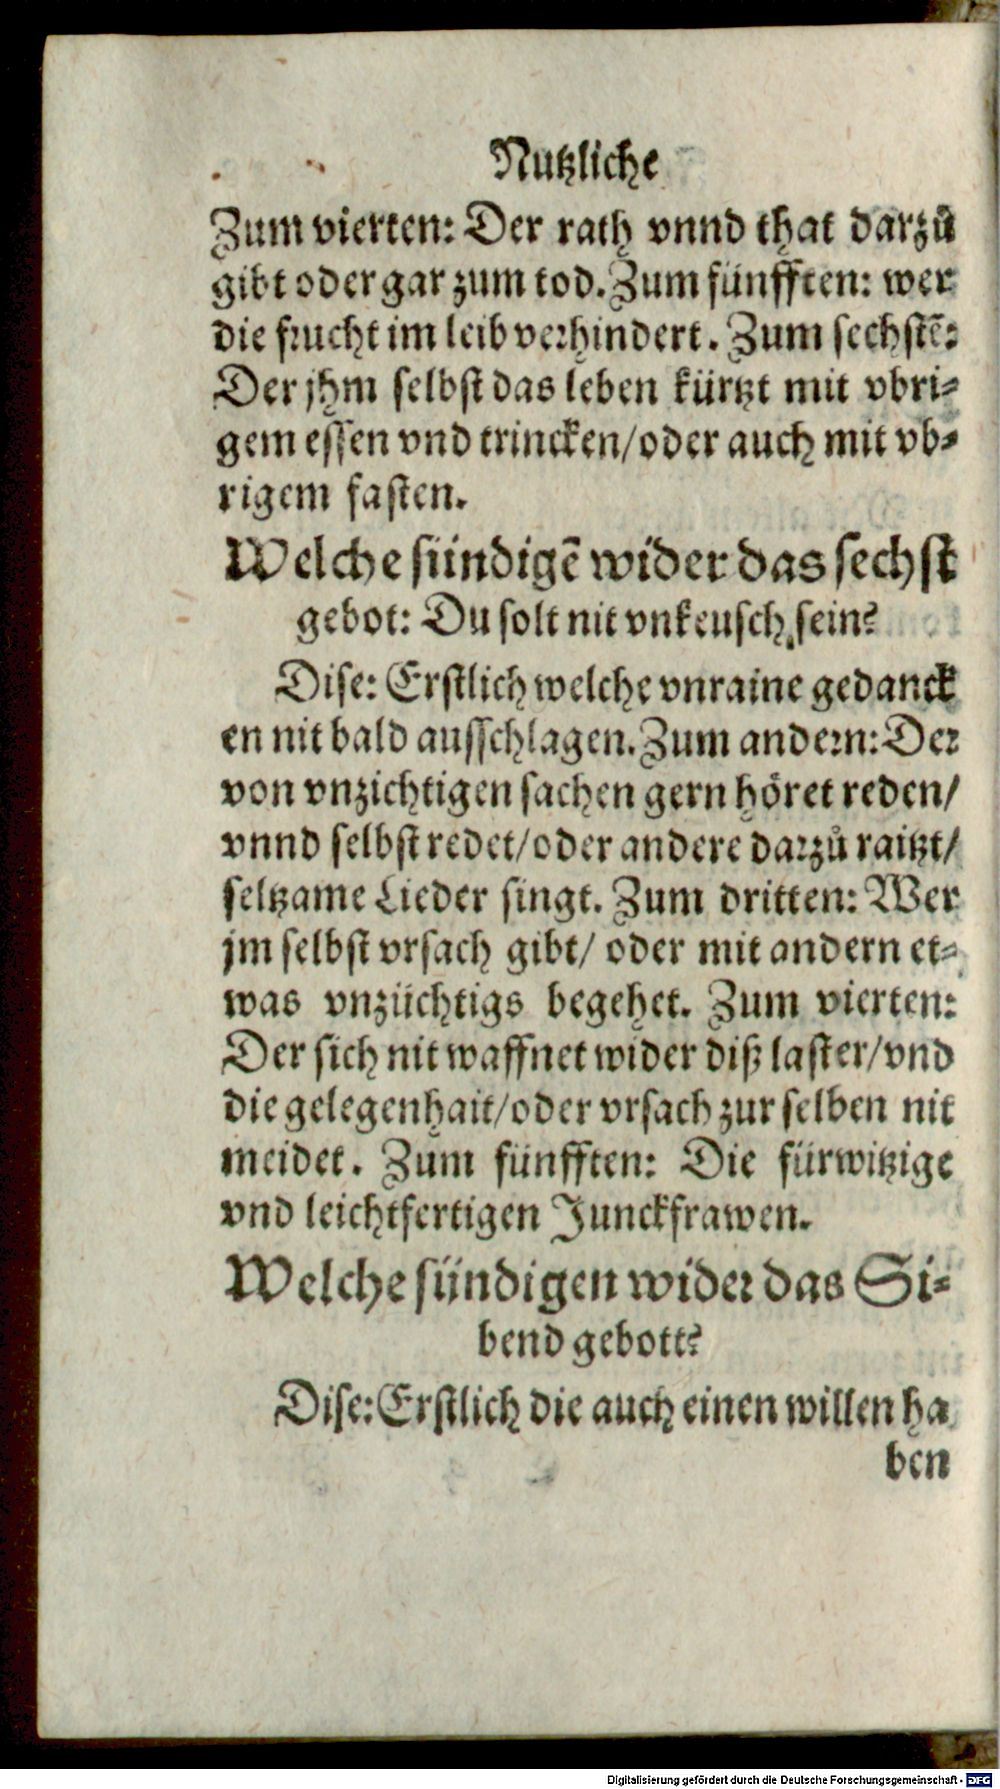 Nutzliche
Zum vierten: Der rath vnnd that darzů
gibt oder gar zum tod. Zum fünfften: wer
die frucht im leib verhindert. Zum sechstẽ:
Der jhm selbst das leben kürtzt mit vbri-
gem essen vnd trincken/oder auch mit vb-
rigem fasten.
Welche sündigẽ wider das sechst
gebot: Du solt nit vnkeusch sein?
Dise: Erstlich welche vnraine gedanck
en nit bald ausschlagen. Zum andern: Der
von vnzichtigen sachen gern höret reden/
vnnd selbst redet/oder andere darzů raitzt/
seltzame Lieder singt. Zum dritten: Wer
jm selbst vrsach gibt/ oder mit andern et-
was vnzüchtigs begehet. Zum vierten:
Der sich nit waffnet wider diß laster/vnd
die gelegenhait/oder vrsach zur selben nit
meidet. Zum fünfften: Die fürwitzige
vnd leichtfertigen Junckfrawen.
Welche sündigen wider das Si-
bend gebott?
Dise: Erstlich die auch einen willen ha
ben
Digitalisierung gefördert durch die Deutsche Forschungsgemeinschaft - DFG